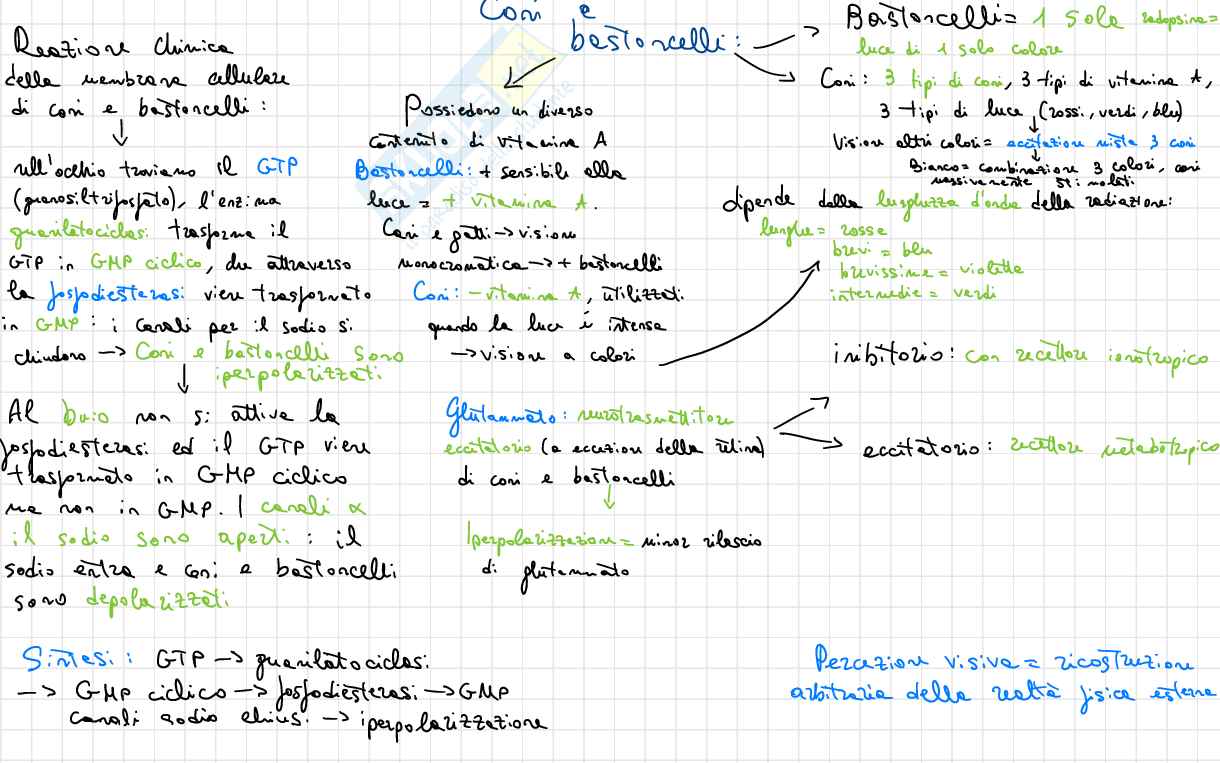 Coni e
bastoncelli:
Reazione chimica
della membrana cellulare
di coni e bastoncelli:
nell'occhio troviamo il GTP
(guanosiltrifosfato), l'enzima
guanilatociclasi trasforma il
GTP in GMP ciclico, che attraverso
la fosfodiesterasi viene trasformato
in GMP: i canali per il sodio si
chiudono → Coni e bastoncelli sono
iperpolarizzati
Al buio non si attiva la
fosfodiesterasi ed il GTP viene
trasformato in GMP ciclico
ma non in GMP. I canali x
il sodio sono aperti: il
sodio entra e coni e bastoncelli
sono depolarizzati
Sintesi: GTP → guanilatociclasi
→ GMP ciclico → fosfodiesterasi → GMP
canali sodio chiusi → iperpolarizzazione
Possiedono un diverso
contenuto di vitamina A
Bastoncelli: + sensibili alla
luce = + vitamina A.
Cani e gatti → visione
monocromatica → + bastoncelli
Coni: - vitamina A, utilizzati
quando la luce è intensa
→ visione a colori
Glutammato: neurotrasmettitore
eccitatorio (a eccezione della retina)
di coni e bastoncelli
Iperpolarizzazione = minor rilascio
di glutammato
Bastoncelli = 1 sola rodopsina =
luce di 1 solo colore
Coni: 3 tipi di coni, 3 tipi di vitamina A,
3 tipi di luce (rossi, verdi, blu)
Visione altri colori = eccitazione mista 3 coni
Bianco = combinazione 3 colori, coni
massivamente stimolati
dipende dalla lunghezza d'onda della radiazione:
lunghe = rosse
brevi = blu
brevissime = violette
intermedie = verdi
inibitorio: con recettore ionotropico
eccitatorio: recettore metabotropico
Percezione visiva = ricostruzione
arbitraria della realtà fisica esterna